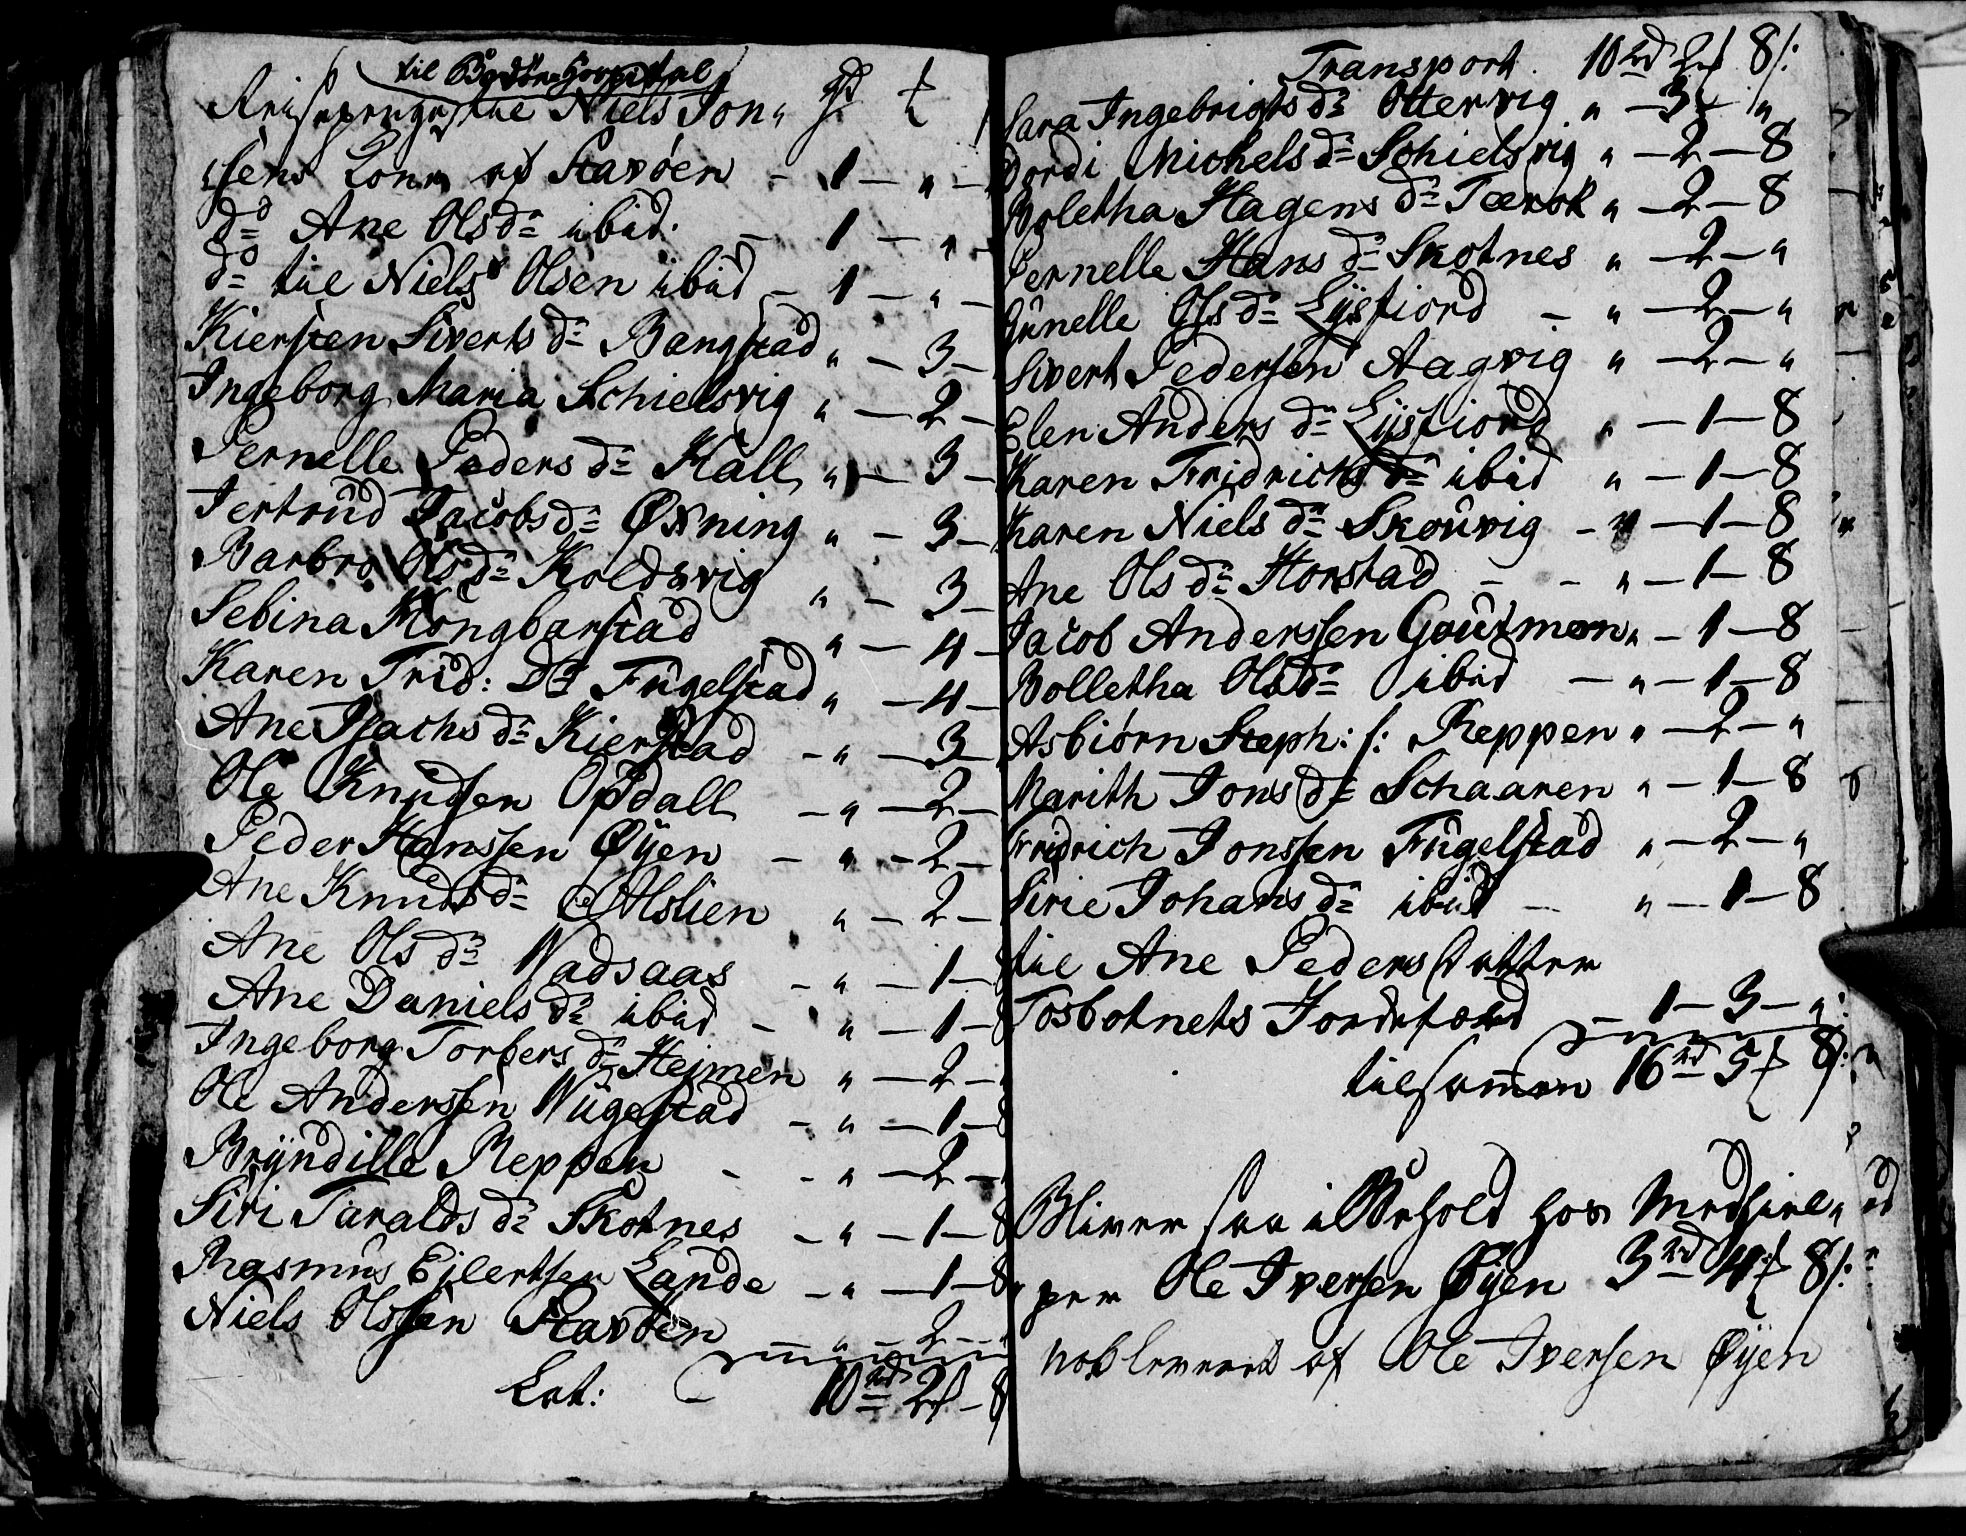 til Bodöens Hospital
Reisepenge til Niels Jon„ rd f
sens Kone af Stavöen - 1 - „ -
do Ane Olsdr ibid. - 1 - „ -
do til Niels Olsen ibid - 1 - „ -
Kiersten Siverts dr Bangstad „ - 3 -
Ingeborg Maria Schielsvig „ - 2 -
Pernelle Peders dr Hall „ - 3 -
Jertrud Jacobs dr Øxning „ - 3 -
Barbro Ols dr Koldsvig „ - 3 -
Sebina Kongbarstad „ - 4 -
Karen Frid: Dr Fugelstad „ - 4 -
Ane Isachs dr Kierstad - „ - 3 -
Ole Knudsen Opdall - „ - 2 -
Peder Hanssen Øyen - „ - 2 -
Ane Knuds dr Alslien „ - 2 -
Ane Ols dr Wadsaas - „ - 1 - 8
Ane Daniels dr ibid - „ - 1 - 8
Ingeborg Torbers dr Hejmen „ - 2 -
Ole Anderssen Wugestad - „ - 1 - 8
Bryndille Reppen - - „ - 2 -
Siri Taralds dr Skotnes - „ - 1 - 8
Rasmus Ejlertsen Lande - „ - 1 - 8
Niels Olssen Stavöen - „ - 2 - „
Lat: 10 rd 2 f - 8
Transport. 10 rd 2 f 8 /:
Sara Ingebrigts dr Ottervig „ - 3 - „
Dordi Michels dr Schielsvig „ - 2 - 8
Boletha Hagens dr Torvik „ - 2 - 8
Pernelle Hans dr Skotnes „ - 2 - „
Gunelle Ols dr Lysfiord - „ - 2 - „
Sivert Pedersen Aagvig „ - 2 - „
Elen Anders dr Lysfiord „ - 1 - 8
Karen Fridrichs dr ibid „ - 1 - 8
Karen Niels dr Skouvig - „ - 1 - 8
Ane Ols dr Horstad - - „ - 1 - 8
Jacob Anderssen „ - 1 - 8
Bolletha Olsdr ibid - „ - 1 - 8
Asbiörn Steph: s: Reppen „ - 2 - „
Marith Jons dr Schaaren „ - 1 - 8
Fridrich Jonssen Fugelstad „ - 2 - „
Sirie Johans dr ibid - „ - 1 - 8
til Ane Pedersdatter
Tosbotnets Jordefærd - 1 - 3 - „:
tilsamen 16 rd 5 f 8 /:
Bliver saa i Behold hos Medhiel„
per Ole Iversen Øyen 3 rd 4 f 8 /:
af Ole Iversen Øyen